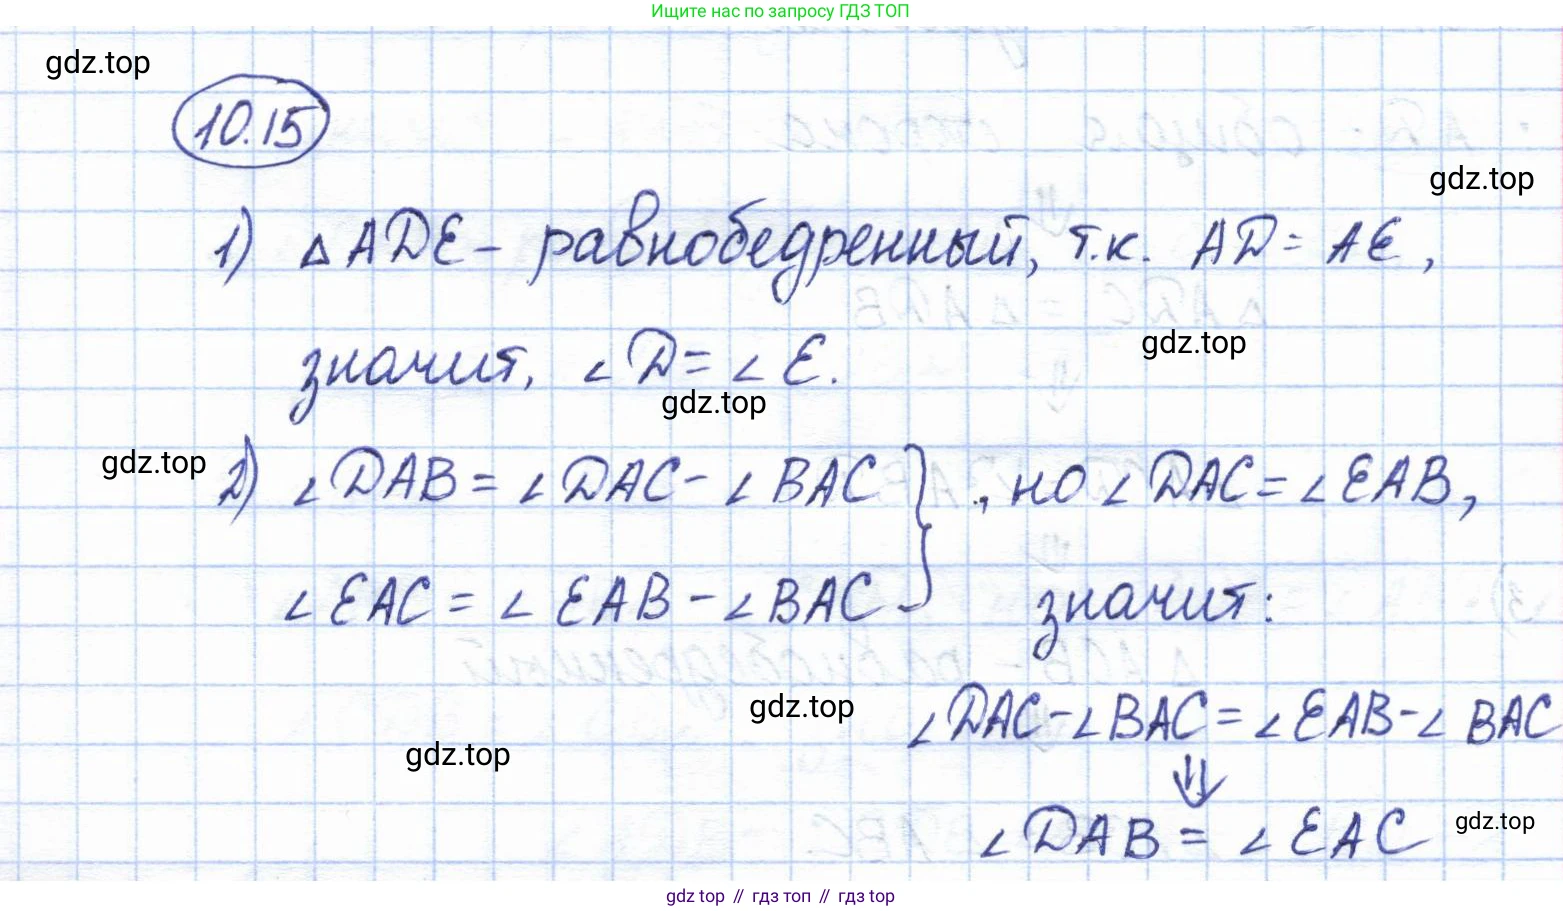 Ищите нас по запросу ГДЗ ТОП
gdz.top
10.15
gdz.top
1) △ADE – равнобедренный, т.к. AD = AE,
gdz.top
значит, ∠D = ∠E.
gdz.top
gdz.top
2) ∠DAB = ∠DAC - ∠BAC } , но ∠DAC = ∠EAB,
∠EAC = ∠EAB - ∠BAC значит:
gdz.top
∠DAC - ∠BAC = ∠EAB - ∠BAC
gdz.top
⇓
∠DAB = ∠EAC
gdz.top
gdz.top // гдз топ // гдз top